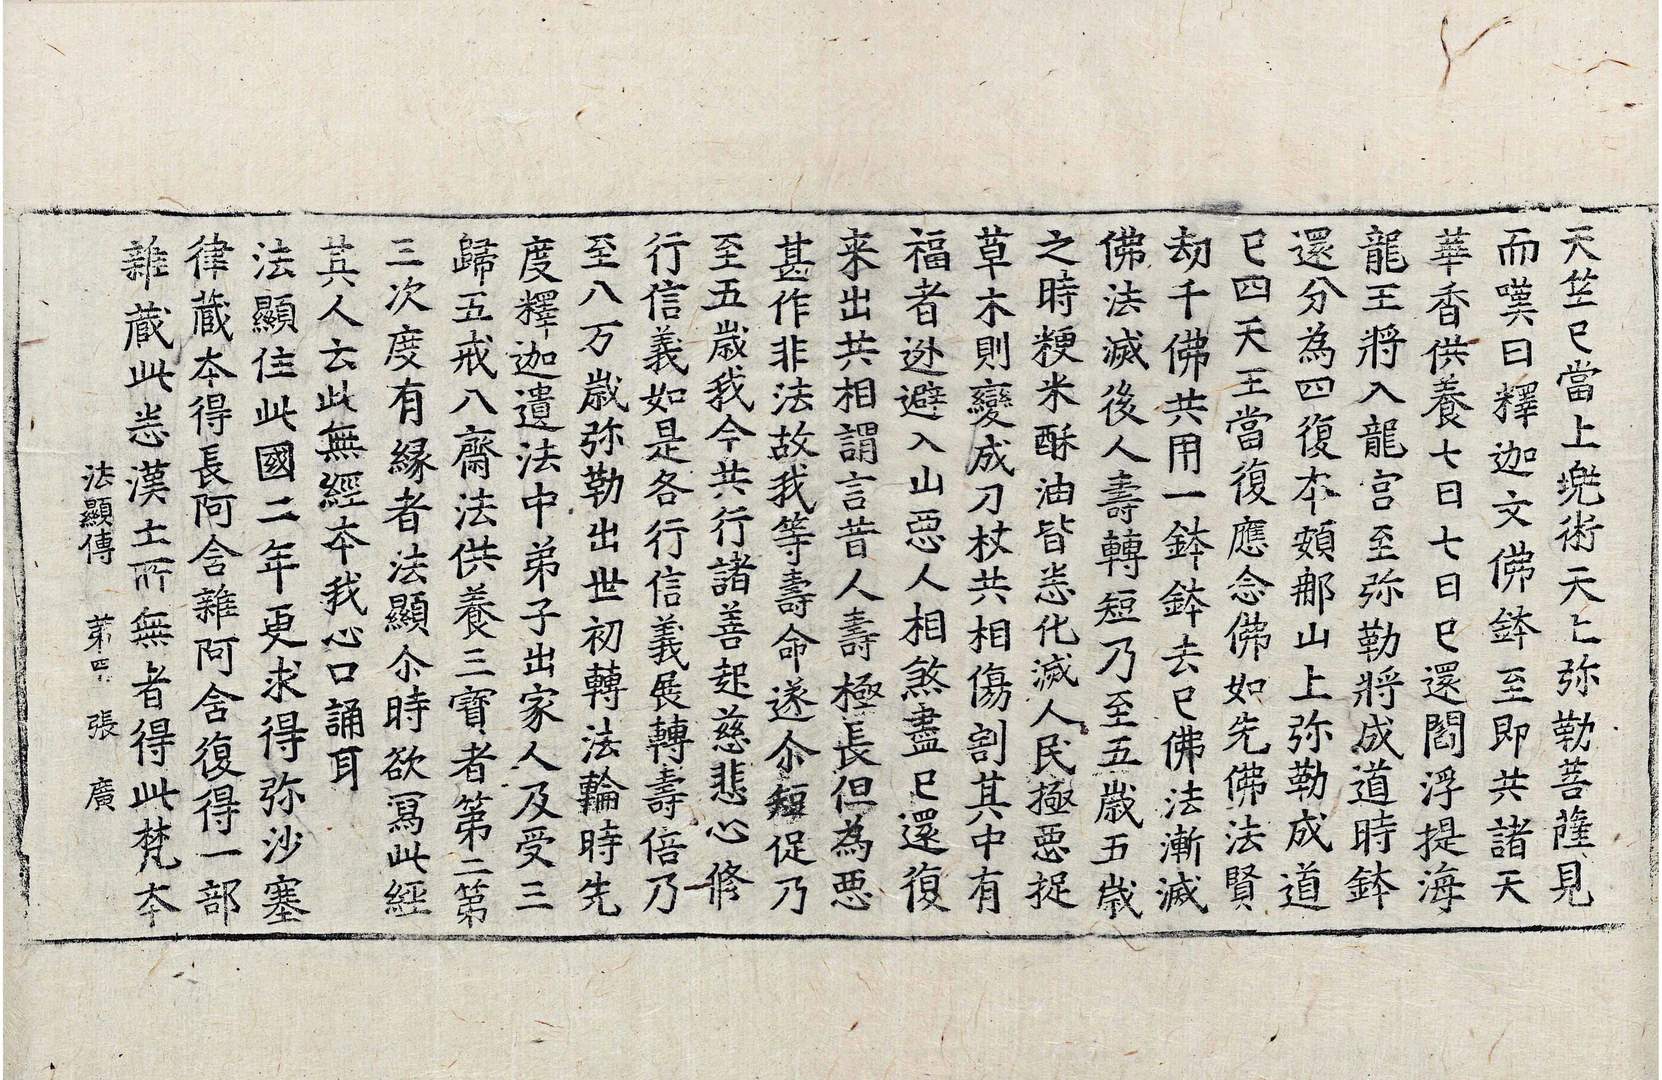 天竺已當上兜術天上弥勒菩薩見
而嘆曰釋迦文佛鉢至即共諸天
華香供養七日七日已還閻浮提海
龍王將入龍宮至弥勒將成道時鉢
還分為四復本頞那山上弥勒成道
已四天王當復應念佛如先佛法賢
劫千佛共用一鉢鉢去已佛法漸滅
佛法滅後人壽轉短乃至五歲五歲
之時粳米酥油皆悉化滅人民極惡捉
草木則變成刀杖共相傷割其中有
福者迯避入山惡人相煞盡已還復
来出共相謂言昔人壽極長但為惡
甚作非法故我等壽命遂尒短促乃
至五歲我今共行諸善起慈悲心修
行信義如是各行信義展轉壽倍乃
至八万歲弥勒出世初轉法輪時先
度釋迦遺法中弟子出家人及受三
歸五戒八齋法供養三寶者第二第
三次度有縁者法顯尒時欲冩此經
其人云此無經本我心口誦耳
法顯住此國二年更求得弥沙塞
律藏本得長阿含雜阿含復得一部
雜藏此悉漢土所無者得此梵本
法顯傳 第四 張 廣